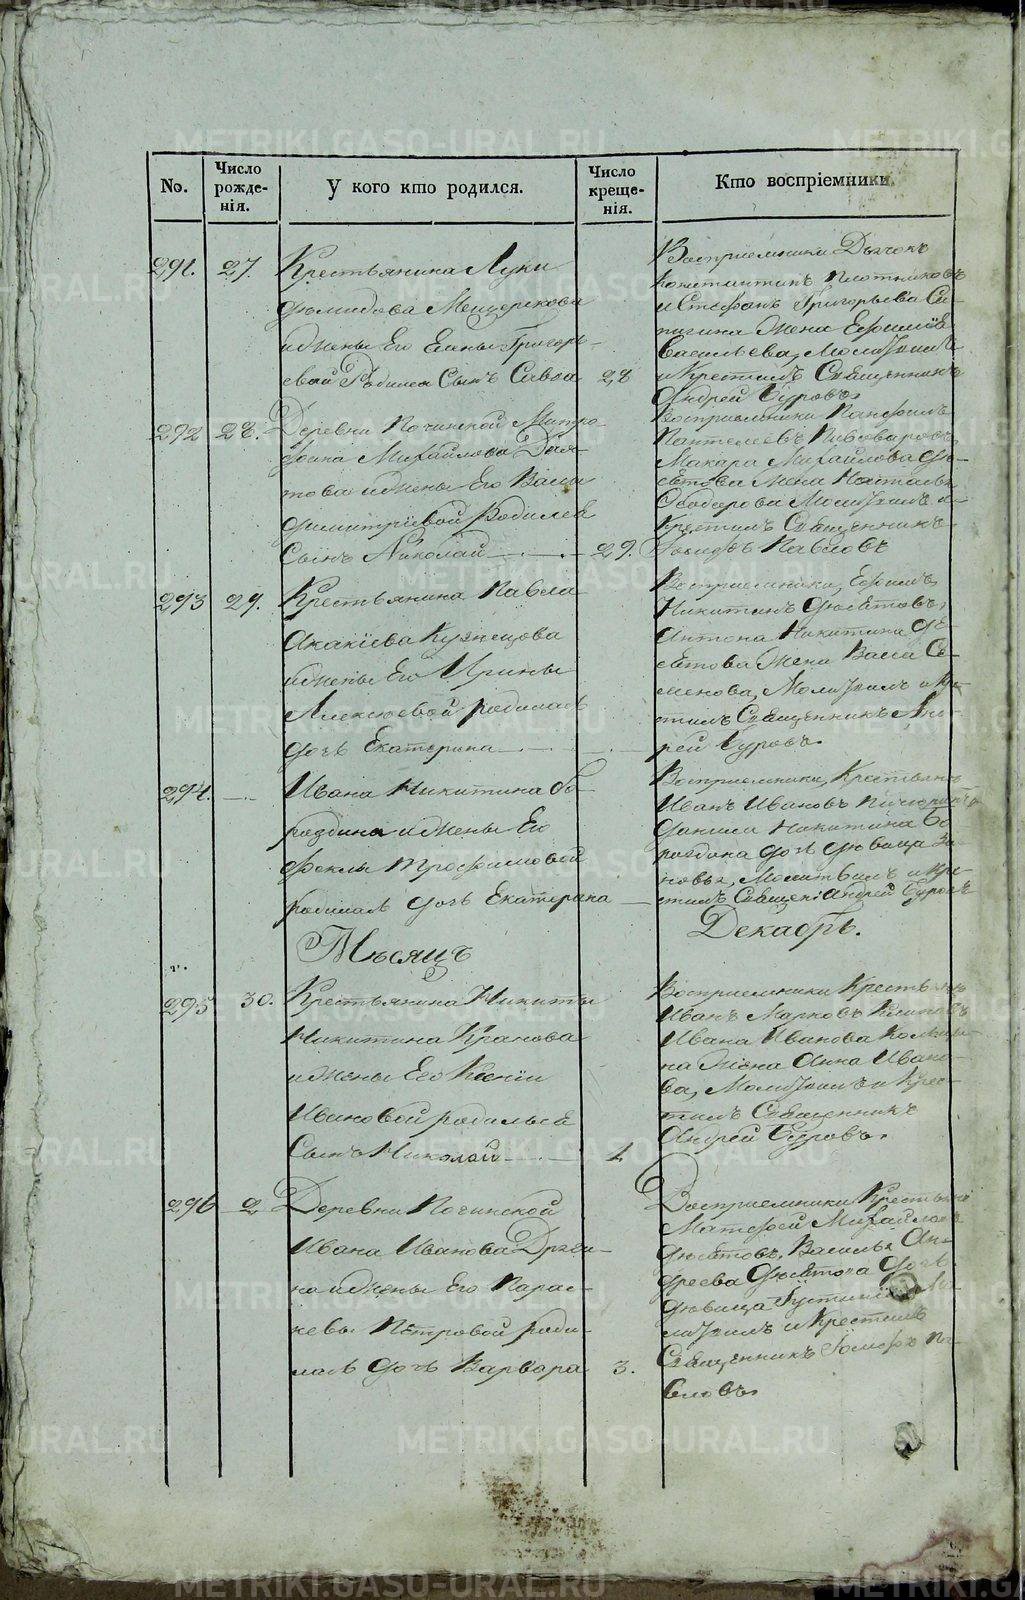 METRIKI.GASO-URAL.RU
No.
Число рожденія.
У кого кто родился.
Число крещенія.
Кто воспріемники.
291. 27.
Крестьянина Луки
Мещерякова
и жены Его Елены Григорь-
евой Родился Сынъ Савва 28
Воспріемники Дьячокъ
Константинъ Плотниковъ
и Стефана Григорьева
жена
Васильева, Молитвилъ
и Крестилъ Священникъ
Андрей Буровъ.
292 28.
Деревни Починской Митро-
фана Михайлова
това и жены Его Вассы
Димитріевой Родился
Сынъ Николай 29.
Воспріемники Панфилъ
Пантелеевъ Пивоваровъ,
Макара Михайлова
жена Наталья
Феодорова Молитвилъ и
Крестилъ Священникъ
Іосифъ Павловъ
293 29.
Крестьянина Павла
Акакіева Кузнецова
и жены Его Ирины
Алексеевой родилась
дочь Екатерина
Воспріемники, Ефимъ
Никитинъ
Антона Никитина
жена Васса Се-
менова, Молитвилъ и Кре-
стилъ Священникъ Анд-
рей Буровъ.
294.
Ивана Никитина Бо-
роздина и жены Его
Феклы Трофимовой
родилась дочь Екатерина
Воспріемники, Крестьян
Иванъ Ивановъ
Данила Никитина Бо-
роздина дочь девица
Молитвилъ и Кре-
стилъ Священ: Андрей Буровъ
Мѣсяцъ Декабрь.
295 30.
Крестьянина Никиты
Никитина Храмова
и жены Его Ксеніи
Ивановой родился
Сынъ Николай 1.
Воспріемники Крестьян
Иванъ Марковъ
Ивана Иванова
на жена Анна Ивано-
ва, Молитвилъ и Крес-
тилъ Священникъ
Андрей Буровъ.
296 2
Деревни Починской
Ивана Иванова
на и жены Его Парас-
кевы Петровой роди-
лась дочь Варвара 3.
Воспріемники Крестьян
Матфей Михайловъ
Василья Ан-
дреева дочь
девица Мо-
литвилъ и Крестилъ
Священникъ Іосифъ Па-
вловъ.